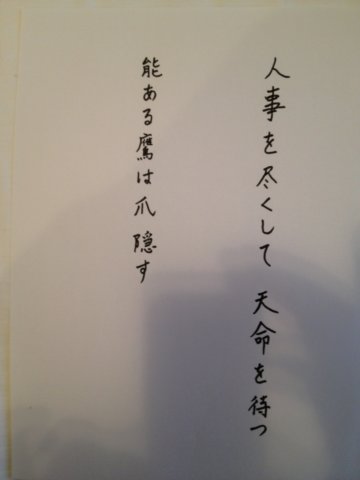 人事を尽くして天命を待つ
能ある鷹は爪隠す